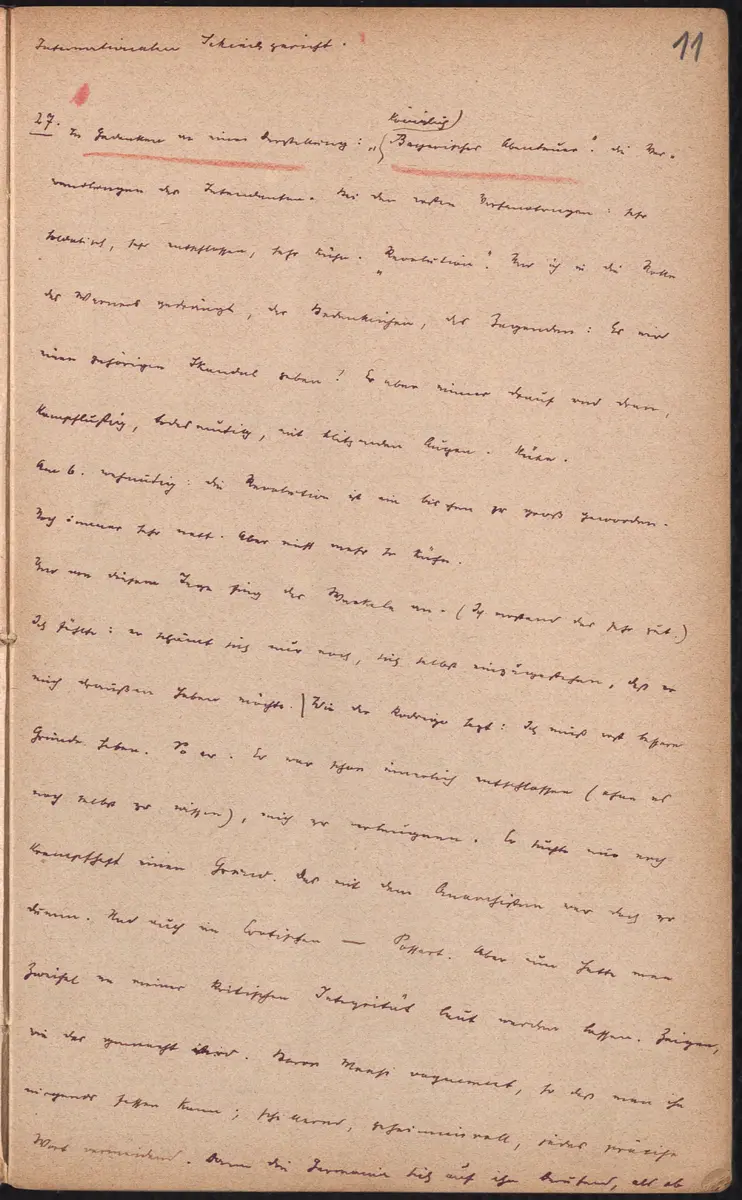 11
Internationalen Schiedsgericht.
27. In Gedanken an einer Darstellung: „(Königlich) Bayerisches Abenteuer“. die Ver-
wandlungen des Intendanten. Bei den ersten Verhandlungen: sehr
soldatisch, sehr entschlossen, sehr kühn. „Revolution“. War ich in die Rolle
des Warners gedrängt, des Bedenklichen, des Zagenden: Es wird
einen gehörigen Skandal geben! Er aber immer drauf und dran,
kampflustig, todesmutig, mit blitzenden Augen. Kühn.
Am 6. wehmütig: die Revolution ist ein bischen zu groß geworden.
Noch immer sehr nett. Aber nicht mehr so kühn.
Nur von diesem Tage fing das Wackeln an. (Ich verstand das sehr gut.)
Ich fühlte: er schämt sich nur noch, sich selbst einzugestehen, daß er
mich draußen haben möchte.) Wie der Rodrigo sagt: Ich muß erst bessere
Gründe haben. So er. Er war schon innerlich entschlossen (ohne es
noch selbst zu wissen), mich zu verleugnen. Er suchte nur noch
krampfhaft einen Grund. Das mit dem Anarchisten war doch zu
dumm. Und auch im Erotischen — Possart. Aber nun hatte man
Zweifel an meiner kritischen Integrität laut werden lassen. Zeigen,
wie das gemacht wird. Baron Mensi vaguement, so daß man ihn
nirgends fassen kann; schillernd, geheimnisvoll, jedes präcise
Wort vermeidend. Dann die Germania sich auf ihn berufend, als ob